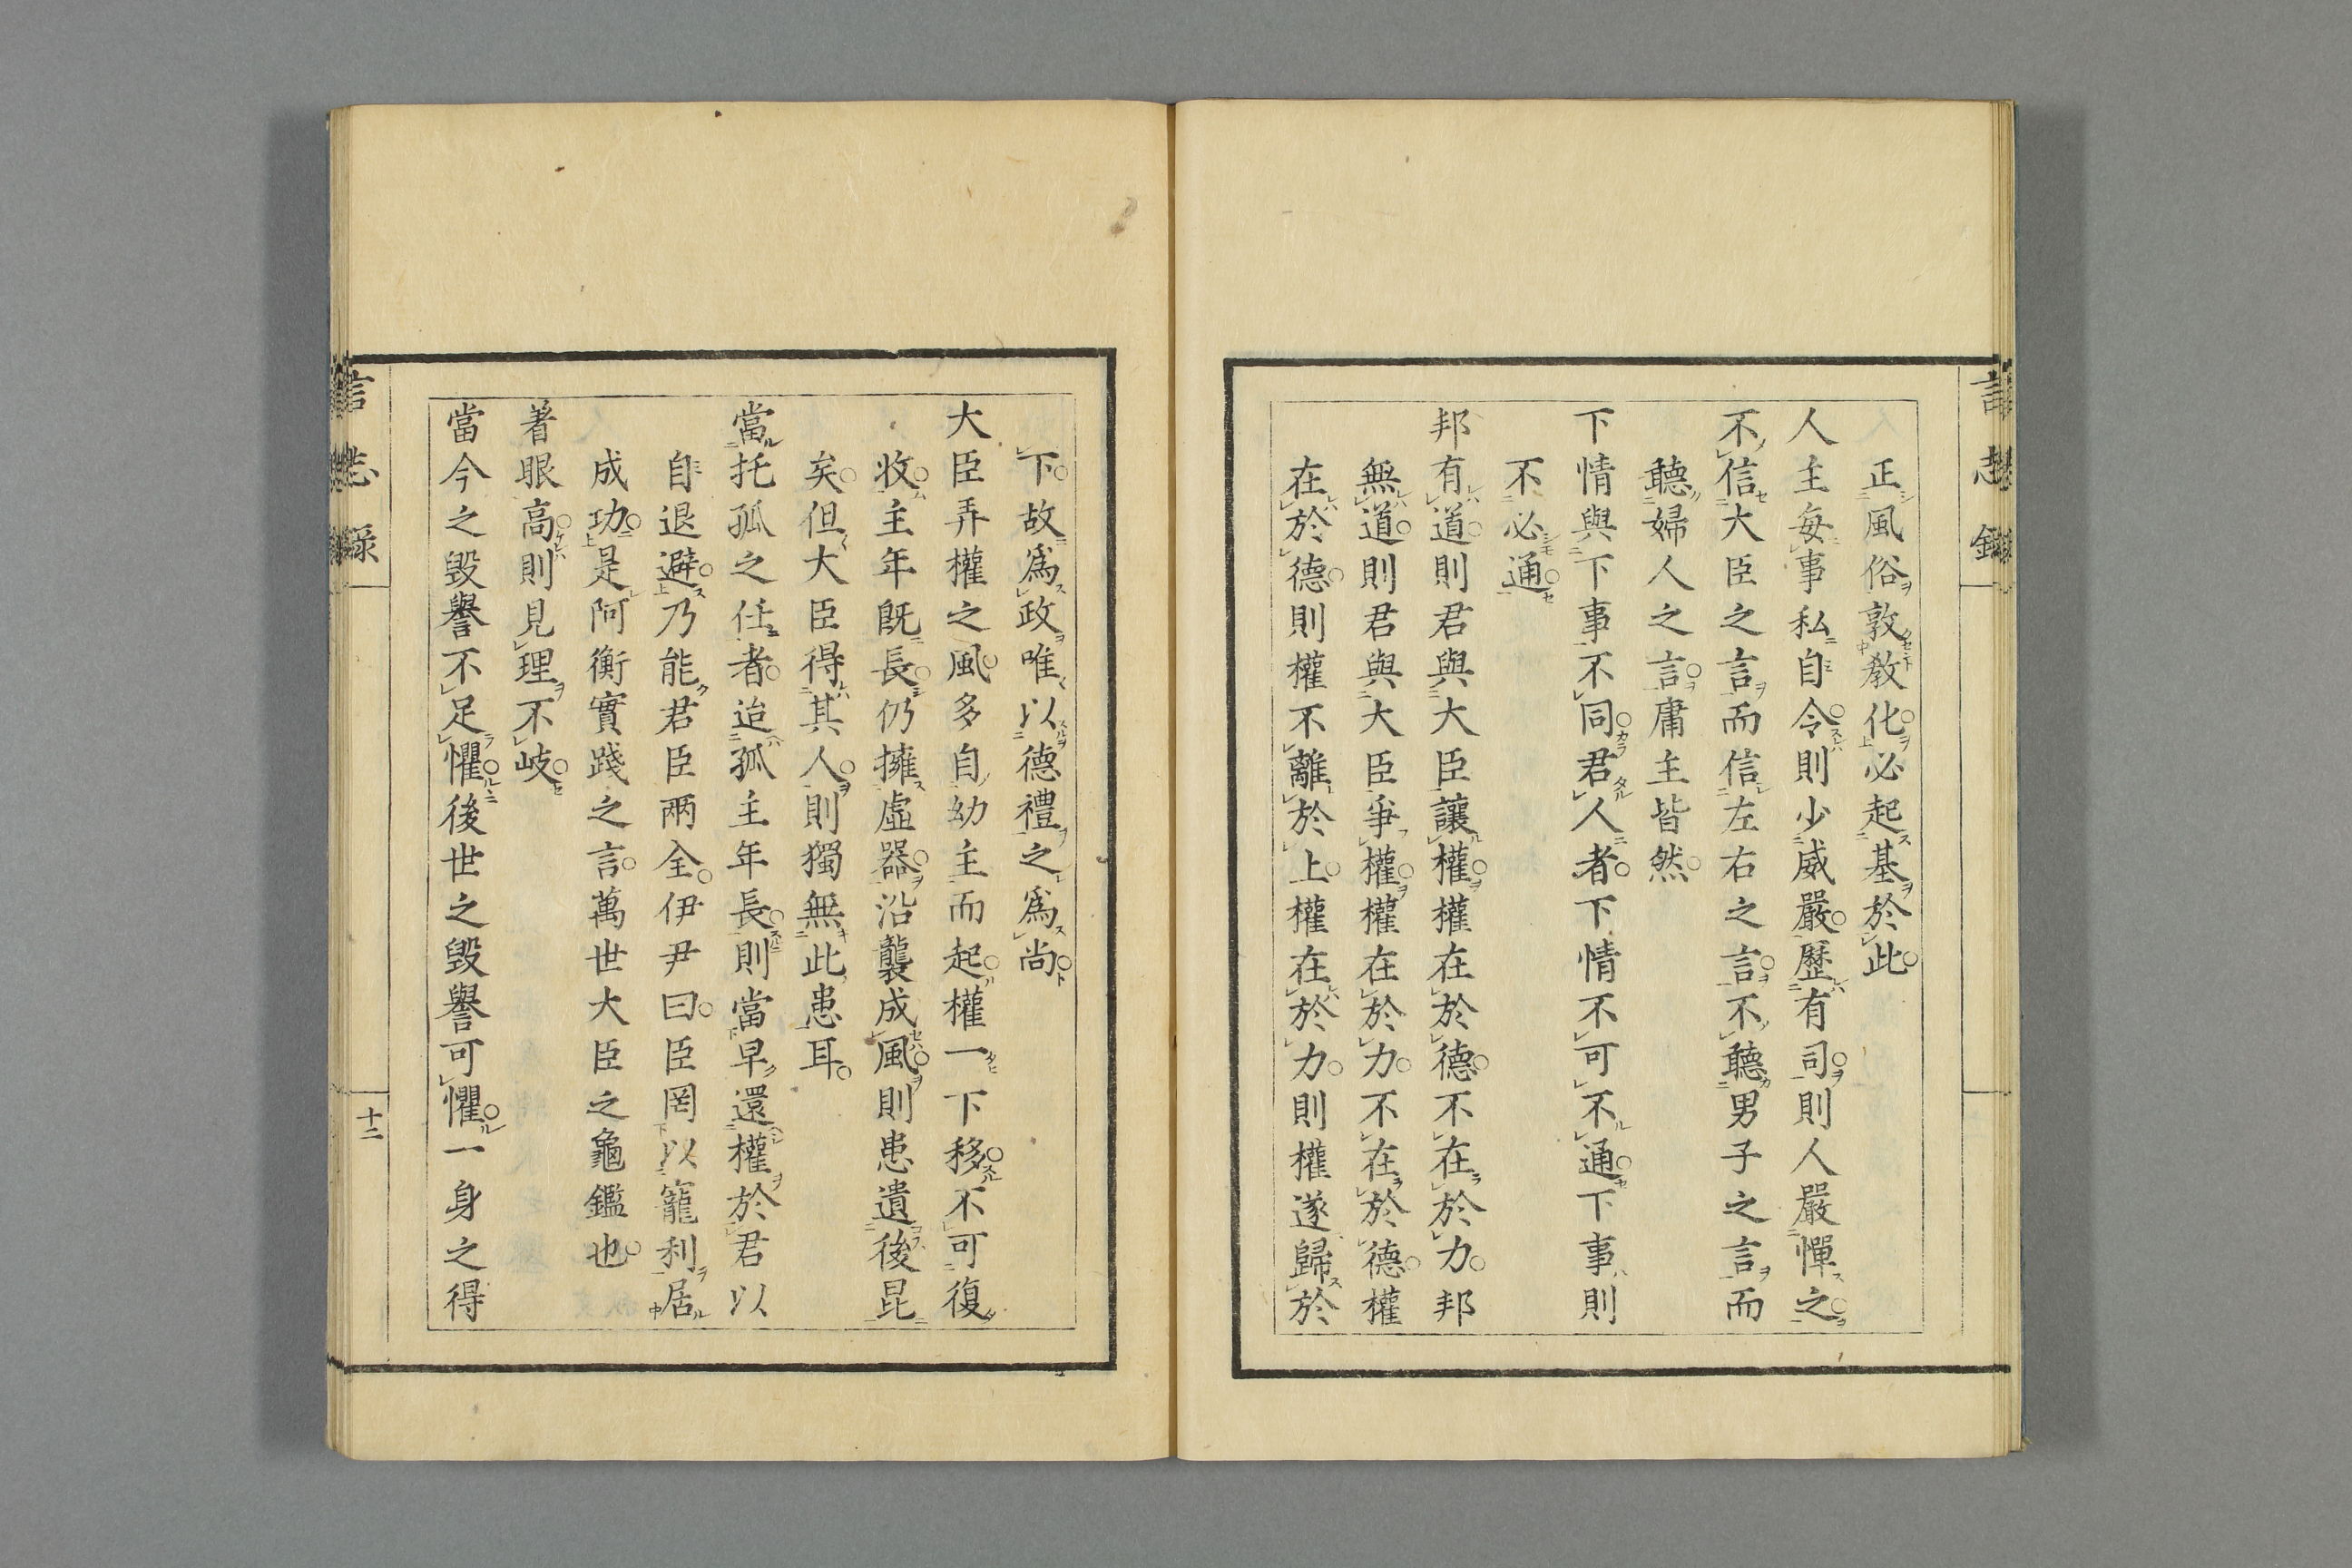 言志錄
正風俗敦敎化必起基於此
人主每事私自令則少威嚴歷有司則人嚴憚之
不信大臣之言而信左右之言不聽男子之言而
聽婦人之言庸主皆然
下情與下事不同君人者下情不可不通下事則
不必通
邦有道則君與大臣讓權權在於德不在於力邦
無道則君與大臣爭權權在於力不在於德權
在於德則權不離於上權在於力則權遂歸於
下故爲政唯以德禮之爲尚
大臣弄權之風多自幼主而起權一下移不可復
收主年既長仍擁虛器沿襲成風則患遺後昆
矣但大臣得其人則獨無此患耳
當托孤之任者迨孤主年長則當早還權於君以
自退避乃能君臣兩全伊尹曰臣罔以寵利居
成功是阿衡實踐之言萬世大臣之龜鑑也
著眼高則見理不岐
當今之毀譽不足懼後世之毀譽可懼一身之得
言志錄
十二